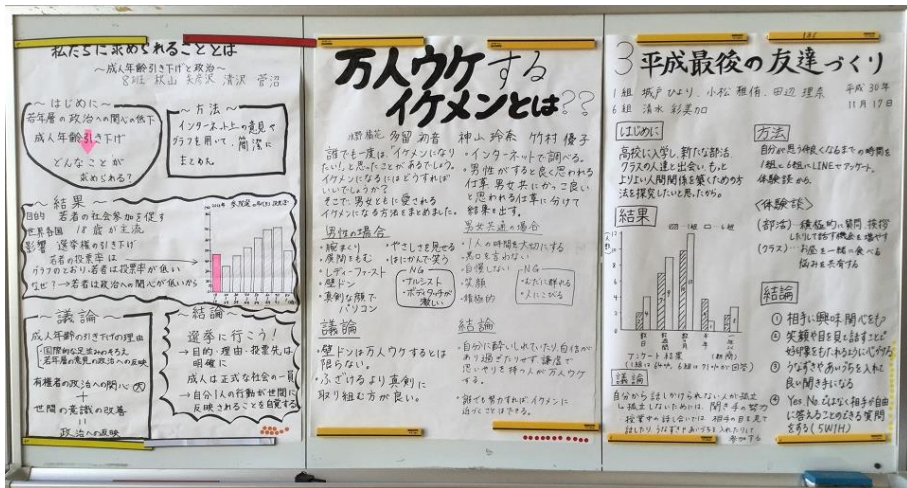 私たちに求められることとは
〜成人年齢引き下げと政治〜
〜はじめに〜
若年層の政治への関心の低下
成人年齢引き下げ
どんなことが
求められる?
〜方法〜
インターネット上の意見や
グラフを用いて、簡潔に
まとめた
〜結果〜
目的 若者の社会参加を促す
世界各国 18歳が主流
影響 選挙権の引き下げ
若者の投票率は
グラフのとおり、若者は投票率が低い
なぜ?→若者は政治への関心が低いから
〜議論〜
成人年齢の引き下げの理由
・国際的な足並みのそろえ
若年層の意見の政治への反映
有権者の政治への関心 大
+
世間の意識の改善
=
政治への反映
〜結論〜
選挙に行こう!
→目的・理由・投票先は
明確に
成人は正式な社会の一員
→自分1人の行動が世間に
反映されることを自覚する
万人ウケする
イケメンとは??
多留 初音 神山 玲奈 竹村 優子
誰でも一度は、「イケメンになり
たい!」と思ったことがあるでしょう。
イケメンになるにはどうすれば
いいでしょうか?
そこで、男女ともに愛される
イケメンになる方法をまとめました。
・インターネットで調べる。
・男性がすると良く思われる
仕草 男女共にかっこ良い
と思われる仕草に分けて
結果を出す。
男性の場合
・腕まくり
・レディーファースト
・壁ドン
・真剣な顔で
パソコン
・やさしさを見せる
・はにかんで笑う
NG
・ナルシスト
・ボディタッチが
激しい
男女共通の場合
・1人の時間を大切にする
・悪口を言わない
・自慢しない
・笑顔
・積極的
NG
・むだに群れる
・人にこびる
議論
・壁ドンは万人ウケするとは
限らない。
・ふざけるより真剣に
取り組む方が良い。
結論
・自分に酔いしれていたり自信が
あり過ぎたりせず、謙虚で
思いやりを持つ人が万人ウケ
する。
誰でも努力すればイケメンに
近づくことはできる。
3 平成最後の友達づくり
1組 城戸 ひより、小松 雅侑、田辺 理奈
6組 清水 彩美加
平成30年
11月17日
はじめに
高校に入学し、新たな部活、
クラスの人達と出会い、もっと
よりよい人間関係を築くための方
法を探究したいと思ったから。
方法
自分が思う仲良くなるまでの時間を
1組と6組にLINEでアンケート。
体験談から
〈体験談〉
(部活)…積極的に質問、挨拶
したりして話す機会を増やす
(クラス)…お昼を一緒に食べる
悩みを共有する
結果
1組
6組
アンケート結果
議論
自分から話しかけられない人が孤立
し、孤立しないためには、聞き手の努力
授業中の話し合いでは相手の目を見て
話したり、うなずきやあいづちを入れたりして
参加する
結論
① 相手に興味関心をもつ
② 笑顔や目を見て話すことで
好印象をもたれるように心がける
③ うなずきやあいづちを入れて
良い聞き手になる
④ Yes、Noではなく相手が自由
に答えることのできる質問
をする(5W1H)